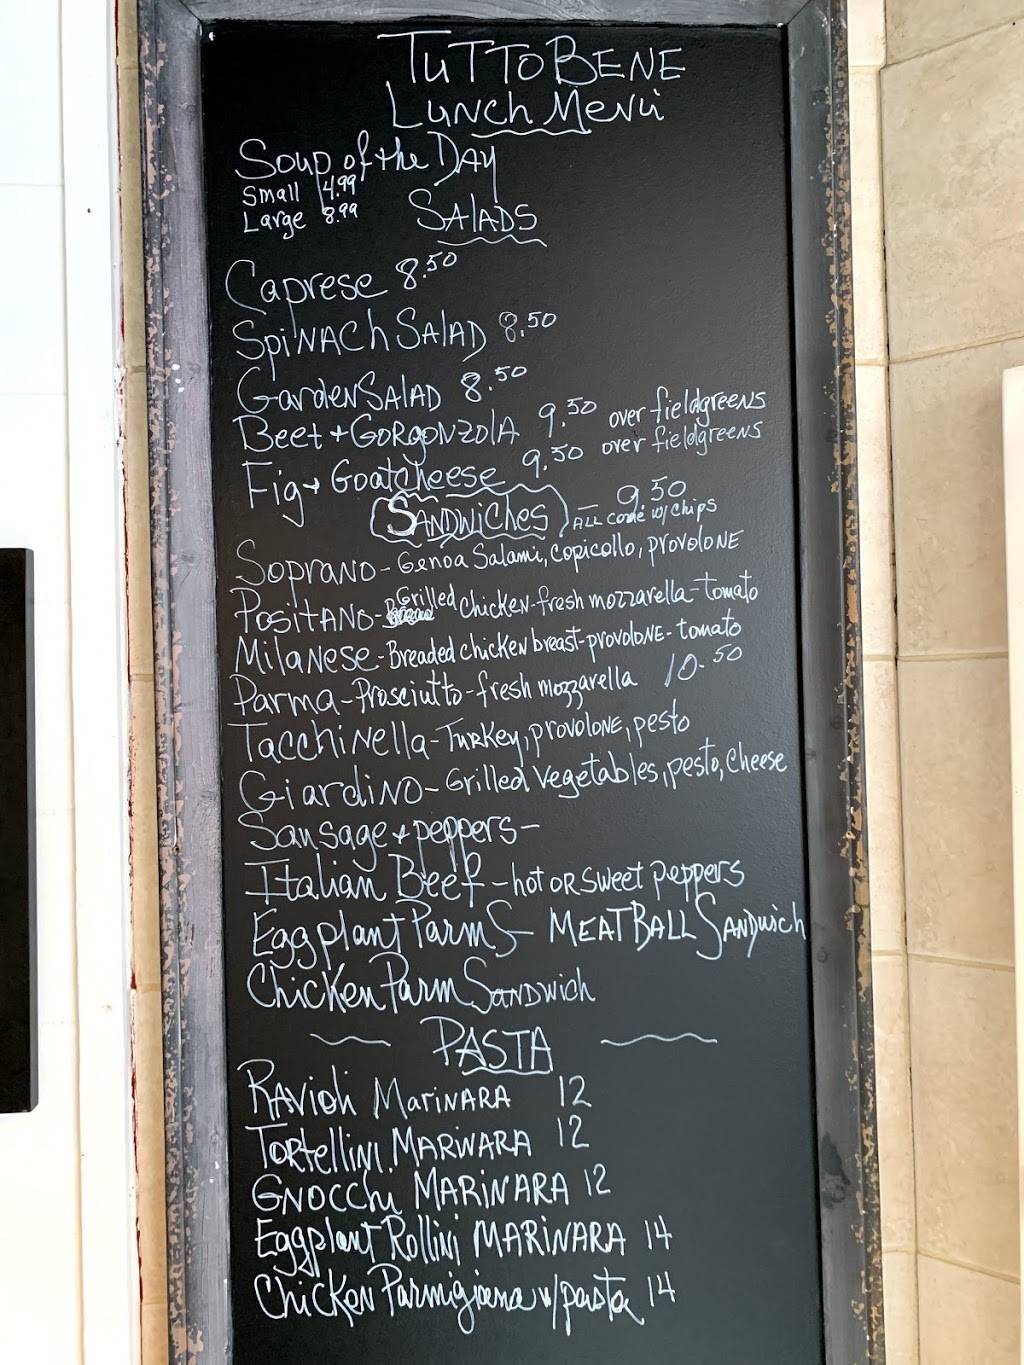 TUTTO BENE
Lunch Menu
Soup of the DAY
Small 4.99
Large 8.99
SALADS
Caprese 8.50
SPINACH SALAD 8.50
GARDEN SALAD 8.50
Beet + GORGONZOLA 9.50 over fieldgreens
Fig + Goatcheese 9.50 over fieldgreens
SANDWICHES - 9.50 ALL come w/ chips
SOPRANO - Genoa Salami, Copicollo, provolone
POSITANO - Grilled chicken - fresh mozzarella - tomato
Milanese - Breaded chicken breast - provolone - tomato
Parma - Prosciutto - fresh mozzarella 10.50
Tacchinella - Turkey, provolone, pesto
Giardino - Grilled vegetables, pesto, cheese
Sausage + peppers -
Italian Beef - hot OR sweet peppers
Eggplant Parm S - MEATBALL SANDwich
Chicken Parm SANDwich
PASTA
RAVioli MARINARA 12
TORTellini MARINARA 12
GNOCCHi MARINARA 12
Eggplant Rollini MARINARA 14
Chicken Parmigiana w/pasta 14